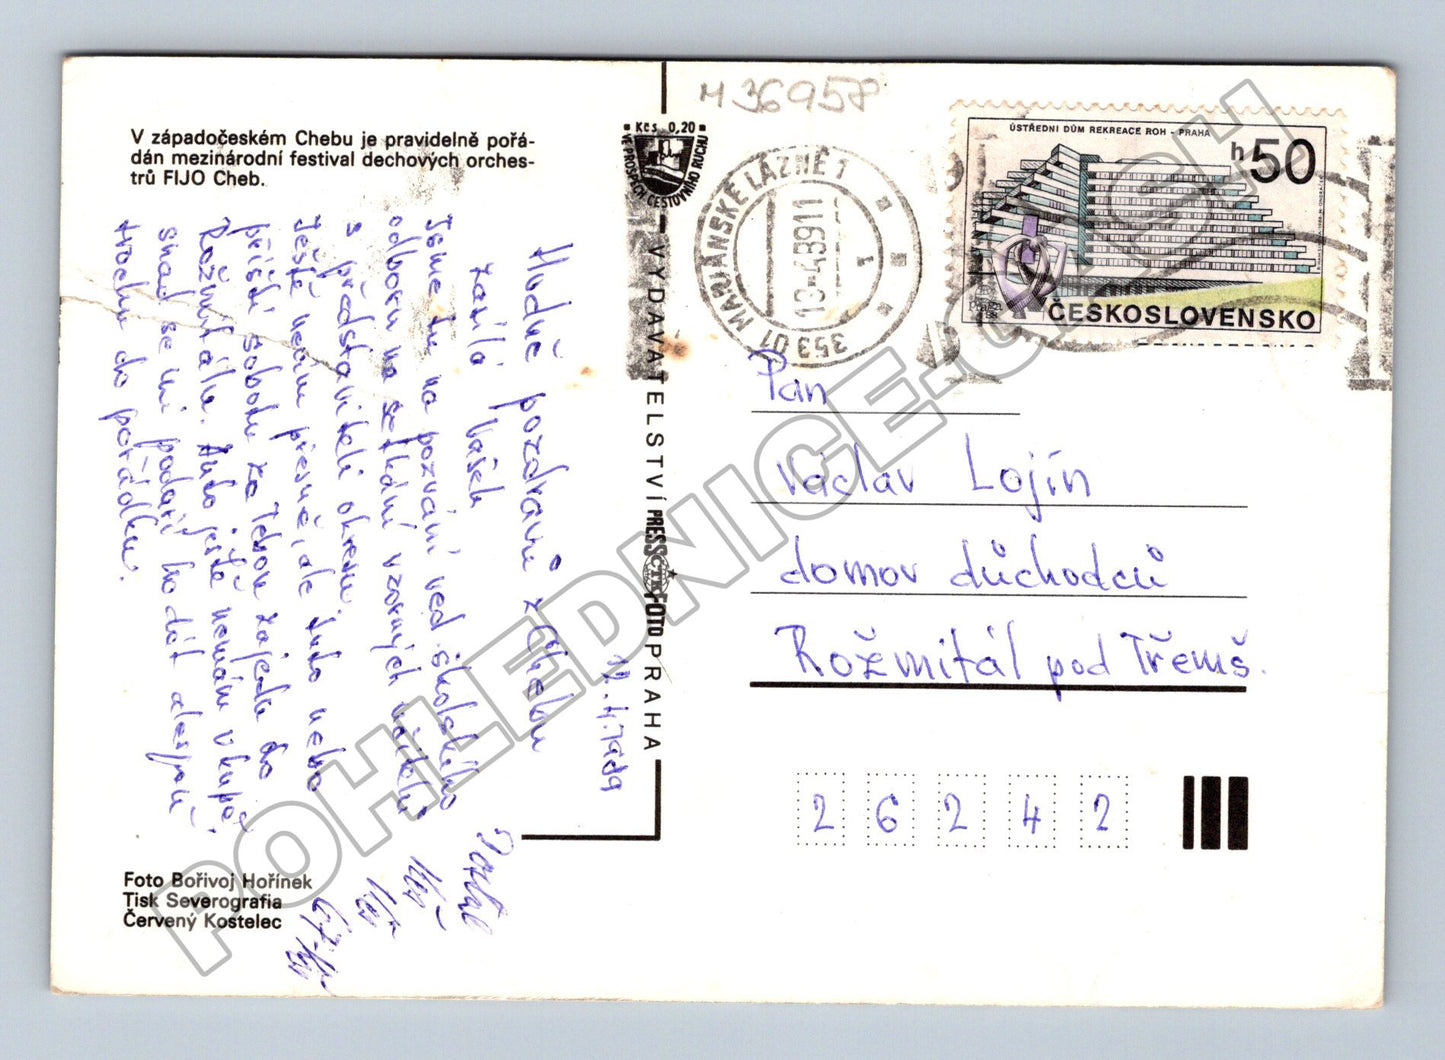 M 36958
V západočeském Chebu je pravidelně pořá-
dán mezinárodní festival dechových orches-
trů FIJO Cheb.
Kčs 0,20
VE PROSPĚCH CESTOVNÍHO RUCHU
353 01 MARIÁNSKÉ LÁZNĚ 1
13.-4.89 11
1
ÚSTŘEDNÍ DŮM REKREACE ROH - PRAHA
h50
ČESKOSLOVENSKO
VYDAVATELSTVÍ PRESSFOTO PRAHA
ČTK
12.4.1989
Hodně pozdravů z Chebu
zasílá Vašek
Jsme tu na pozvání ved. školského
odboru na setkání vzorných učitelů
s představiteli okresu.
Ještě nevím přesně, ale tuto nebo
příští sobotu za Tebou zajedu do
Rožmitálu. Auto ještě nemám v kupě,
snad se mi podaří ho dát alespoň
trochu do pořádku.
Pan
Václav Lojín
domov důchodců
Rožmitál pod Třemš.
26242
Foto Bořivoj Hořínek
Tisk Severografia
Červený Kostelec
POHLEDNICE-CZECH